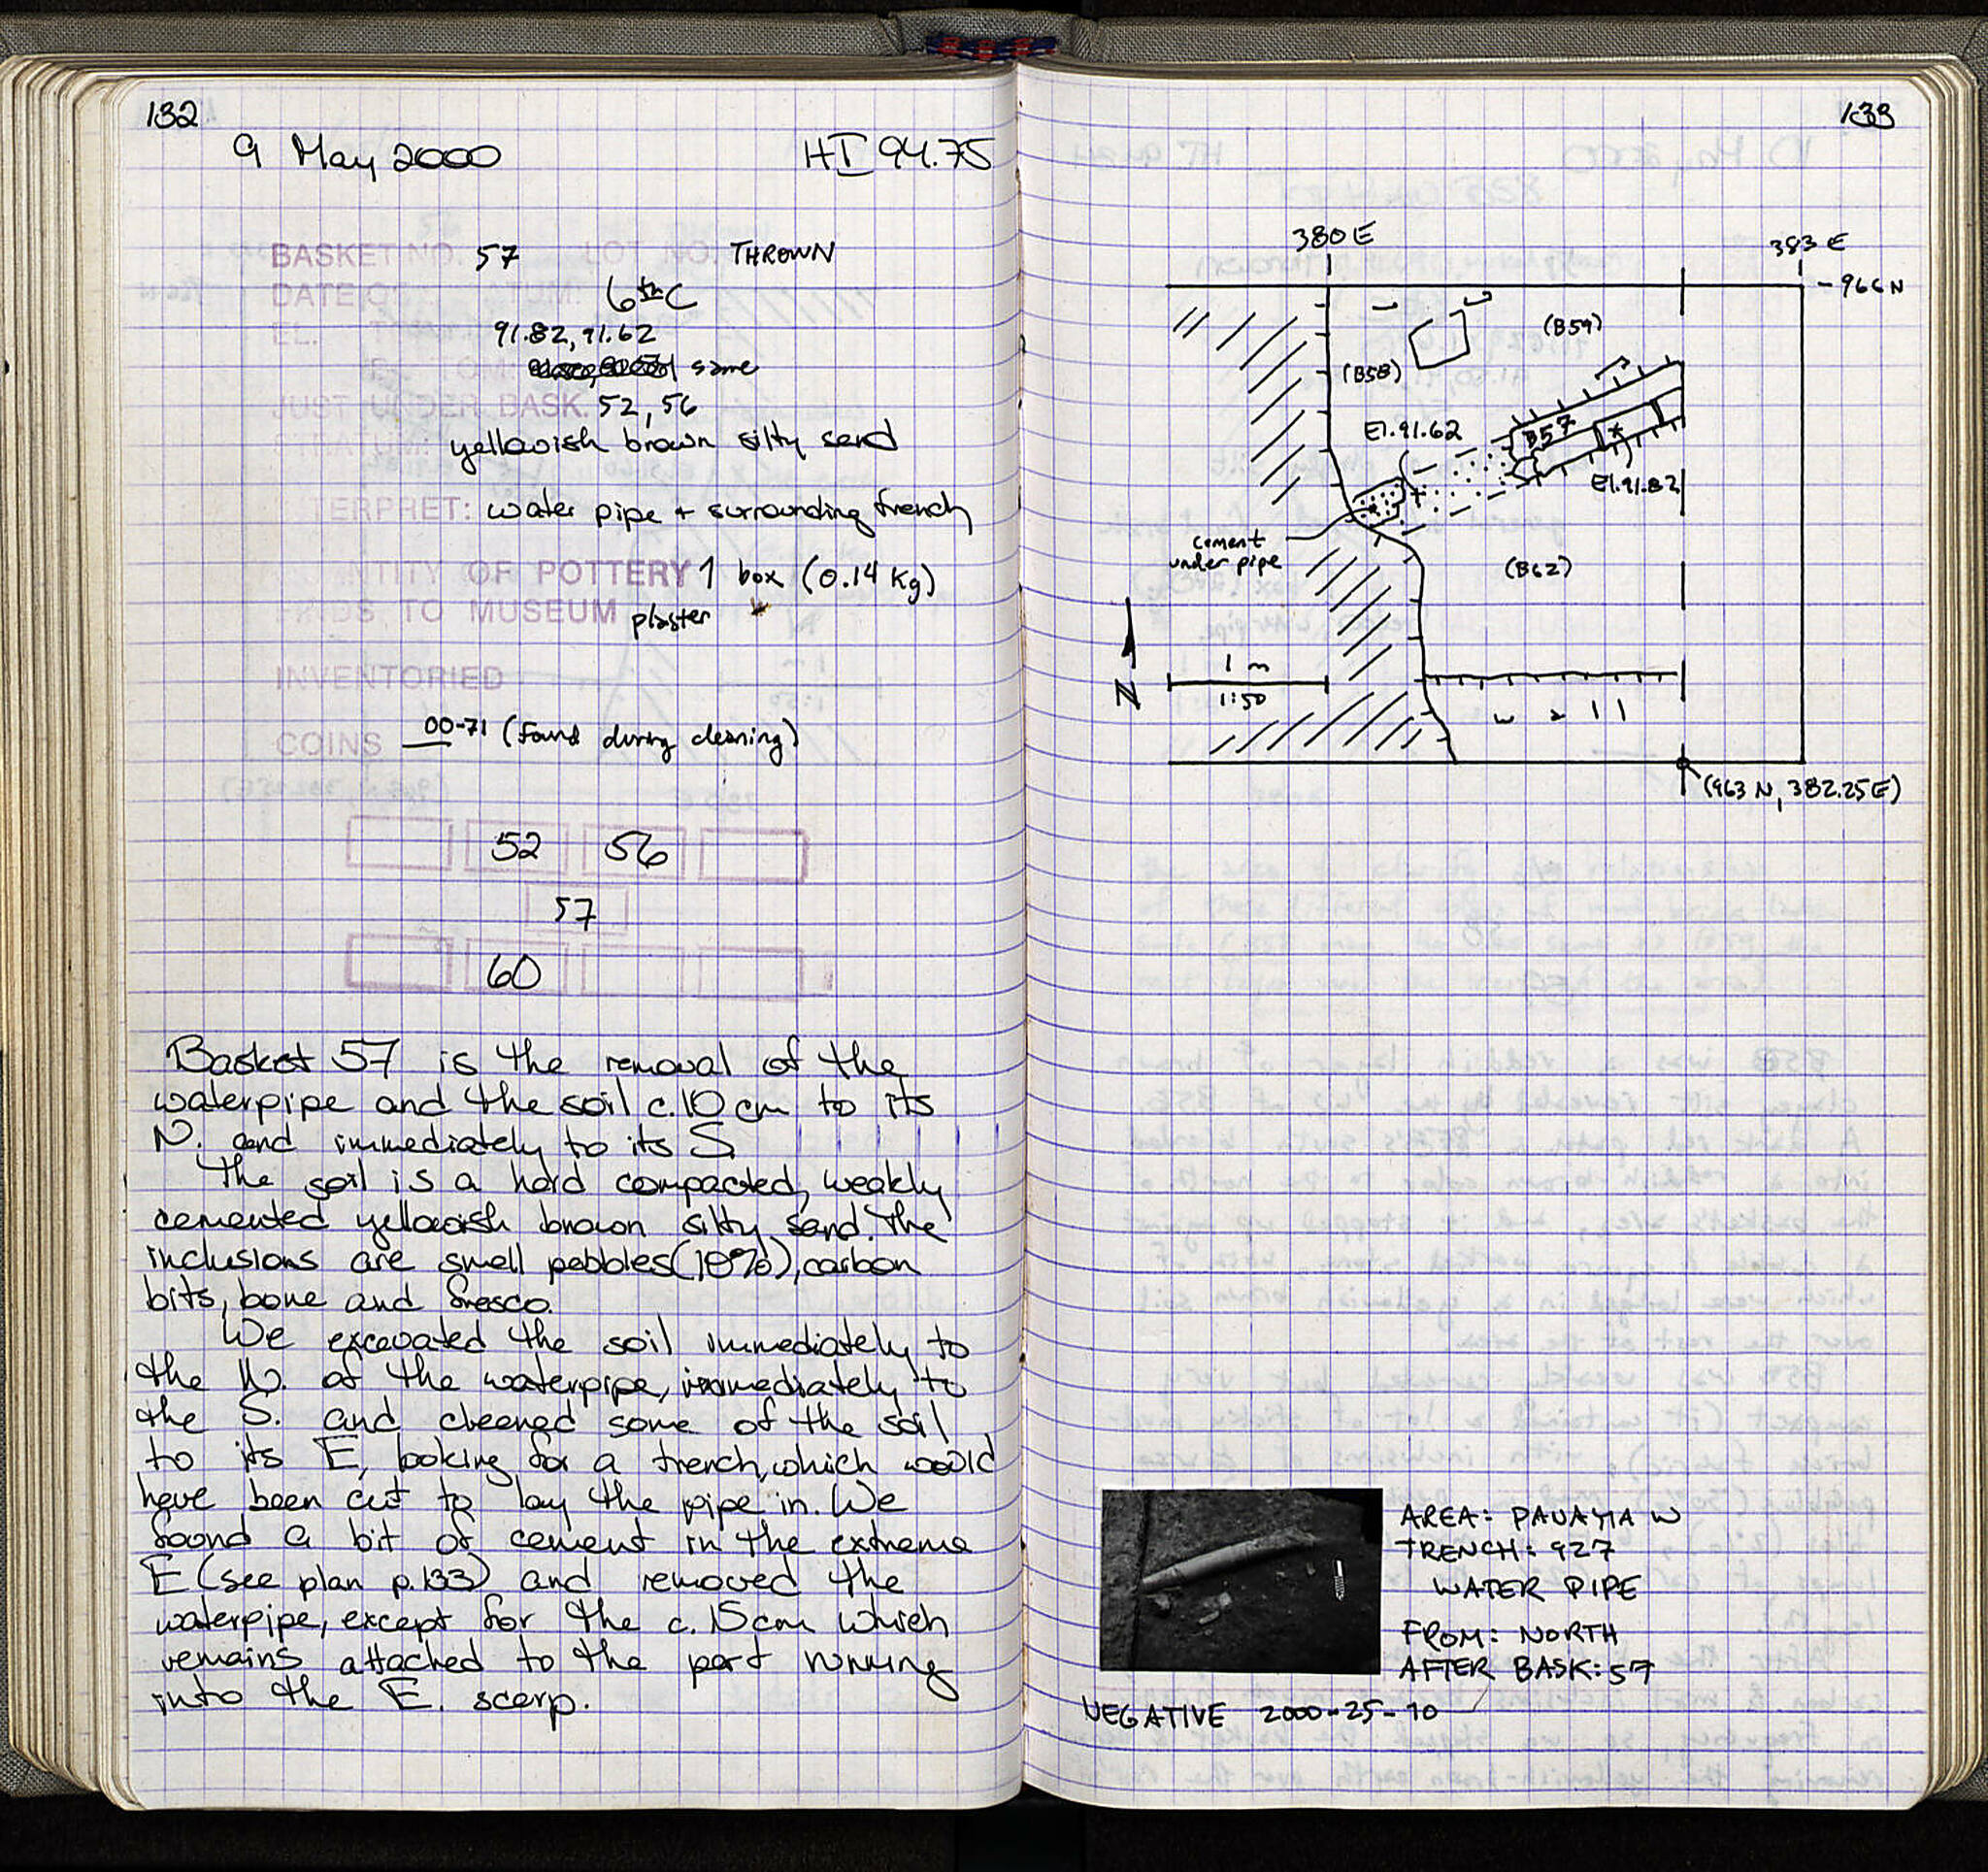 132
9 May 2000 HI 94.75
BASKET NO. 57 LOT NO. THROWN
DATE OF ATUM: 6th C
EL. T 91.82, 91.62
TOM: same
JUST UNDER BASK. 52, 56
STRATUM: yellowish brown silty sand
INTERPRET: water pipe + surrounding trench
QUANTITY OF POTTERY 1 box (0.14 kg)
FINDS TO MUSEUM plaster
INVENTORIED
COINS 00-71 (found during cleaning)
52 56
57
60
Basket 57 is the removal of the
waterpipe and the soil c. 10 cm to its
N. and immediately to its S.
The soil is a hard compacted, weakly
cemented yellowish brown silty sand. The
inclusions are small pebbles (10%), carbon
bits, bone and fresco.
We excavated the soil immediately to
the N. of the waterpipe, immediately to
the S. and cleaned some of the soil
to its E, looking for a trench, which would
have been cut to lay the pipe in. We
found a bit of cement in the extreme
E (see plan p. 133) and removed the
waterpipe, except for the c. 15cm which
remains attached to the part running
into the E. scarp.
133
380 E
383 E
966 N
(B59)
(B58)
B57
El. 91.62
El. 91.82
cement
under pipe
(B62)
1 m
1:50
N
wall
(963 N, 382.25 E)
AREA: PANAYIA W
TRENCH: 927
WATER PIPE
FROM: NORTH
AFTER BASK: 57
NEGATIVE 2000-25-10